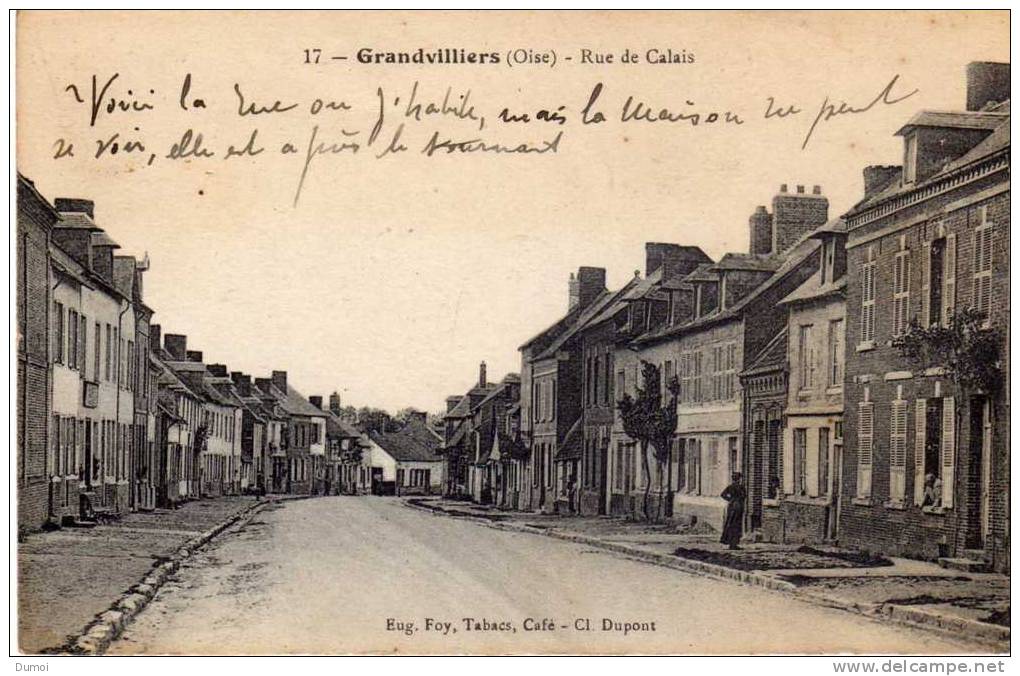 17 - Grandvilliers (Oise) - Rue de Calais
Voici la rue ou j'habite, mais la maison ne peut
se voir, elle est après le tournant
Eug. Foy, Tabacs, Café - Cl. Dupont
Dumoi
www.delcampe.net